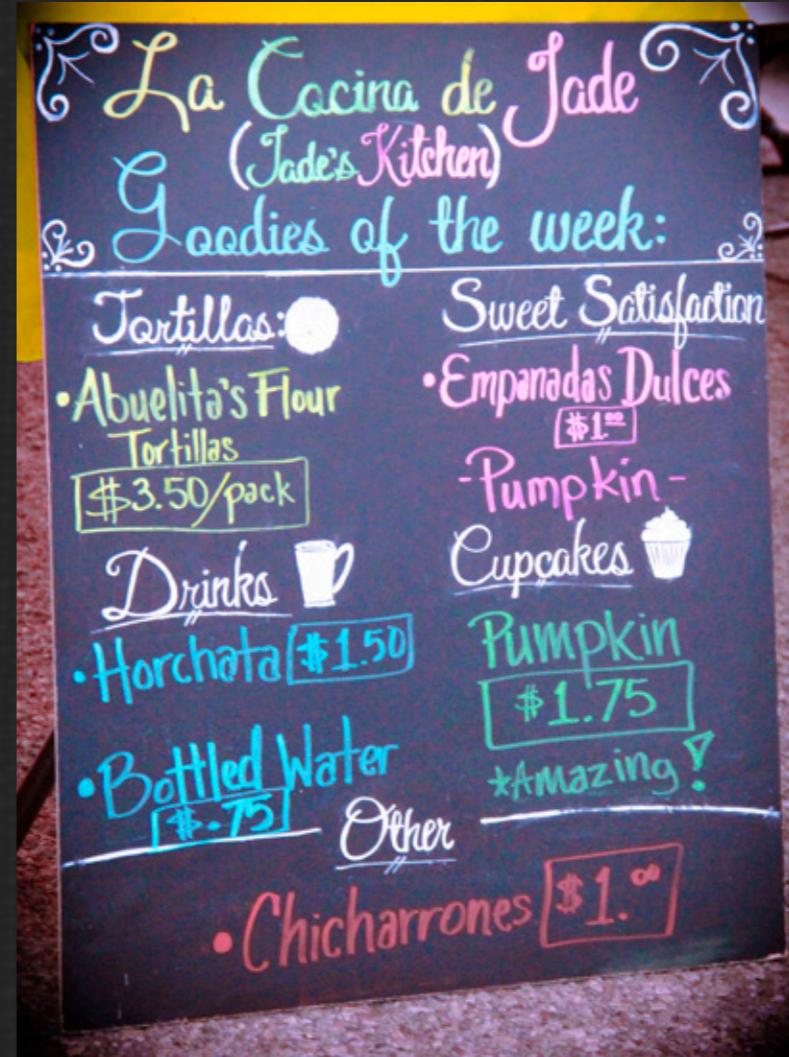 La Cocina de Jade
(Jade's Kitchen)
Goodies of the week:
Tortillas:
•Abuelita's Flour
Tortillas
$3.50/pack
Drinks
•Horchata $1.50
•Bottled Water
$.75
Sweet Satisfaction
•Empanadas Dulces
$1.00
-Pumpkin-
Cupcakes
Pumpkin
$1.75
*Amazing!
Other
•Chicharrones $1.00